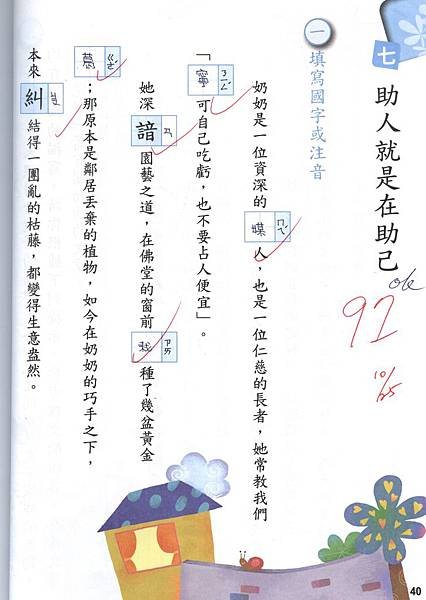 七 助人就是在助己
ok
92
10/25
一 填寫國字或注音
奶奶是一位資深的媒ㄇㄟˊ人，也是一位仁慈的長者，她常教我們
「寧ㄋㄧㄥˊ可自己吃虧，也不要占人便宜」。
她深諳ㄢ園藝之道，在佛堂的窗前栽ㄗㄞ種了幾盆黃金
葛ㄍㄜˊ；那原本是鄰居丟棄的植物，如今在奶奶的巧手之下，
本來糾ㄐㄧㄡ結得一團亂的枯藤，都變得生意盎然。
40